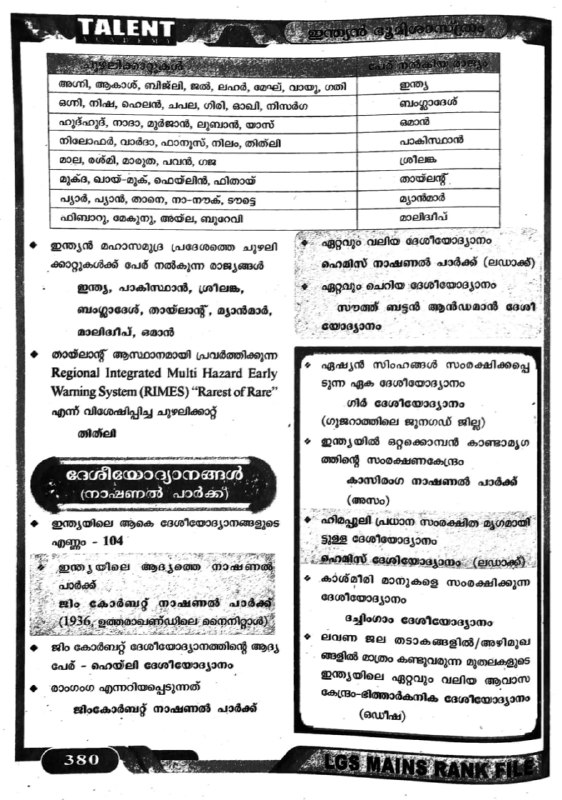 TALENT
ACADEMY
ഇന്ത്യൻ ഭൂമിശാസ്ത്രം
ചുഴലിക്കാറ്റുകൾ പേര് നൽകിയ രാജ്യം
അഗ്നി, ആകാശ്, ബിജ്‌ലി, ജൽ, ലഹർ, മേഘ്, വായു, ഗതി ഇന്ത്യ
ഒഗ്നി, നിഷ, ഹെലൻ, ചപല, ഗിരി, ഓഖി, നിസർഗ ബംഗ്ലാദേശ്
ഹുദ്ഹുദ്, നാദാ, മുർജാൻ, ലുബാൻ, യാസ് ഒമാൻ
നിലോഫർ, വാർദാ, ഫാനൂസ്, നിലം, തിത്‌ലി പാകിസ്ഥാൻ
മാല, രശ്മി, മാരുത, പവൻ, ഗജ ശ്രീലങ്ക
മുക്ദ, ഖായ്-മുക്, ഫെയ്‌ലിൻ, ഫിതായ് തായ്‌ലന്റ്
പ്യാർ, പ്യാൻ, താനെ, നാ-നൗക്, ടൗട്ടെ മ്യാൻമാർ
ഫിബാറു, മേകുനു, അയ്‌ല, ബുറേവി മാലിദ്വീപ്
ഇന്ത്യൻ മഹാസമുദ്ര പ്രദേശത്തെ ചുഴലി
ക്കാറ്റുകൾക്ക് പേര് നൽകുന്ന രാജ്യങ്ങൾ
ഇന്ത്യ, പാകിസ്ഥാൻ, ശ്രീലങ്ക,
ബംഗ്ലാദേശ്, തായ്‌ലന്റ്, മ്യാൻമാർ,
മാലിദ്വീപ്, ഒമാൻ
തായ്‌ലാന്റ് ആസ്ഥാനമായി പ്രവർത്തിക്കുന്ന
Regional Integrated Multi Hazard Early
Warning System (RIMES) “Rarest of Rare”
എന്ന് വിശേഷിപ്പിച്ച ചുഴലിക്കാറ്റ്
തിത്‌ലി
ദേശീയോദ്യാനങ്ങൾ
(നാഷണൽ പാർക്ക്)
ഇന്ത്യയിലെ ആകെ ദേശീയോദ്യാനങ്ങളുടെ
എണ്ണം - 104
ഇന്ത്യയിലെ ആദ്യത്തെ നാഷണൽ
പാർക്ക്
ജിം കോർബറ്റ് നാഷണൽ പാർക്ക്
(1936, ഉത്തരാഖണ്ഡിലെ നൈനിറ്റാൾ)
ജിം കോർബറ്റ് ദേശീയോദ്യാനത്തിന്റെ ആദ്യ
പേര് - ഹെയ്‌ലി ദേശീയോദ്യാനം
രാംഗംഗ എന്നറിയപ്പെടുന്നത്
ജിംകോർബറ്റ് നാഷണൽ പാർക്ക്
ഏറ്റവും വലിയ ദേശീയോദ്യാനം
ഹെമിസ് നാഷണൽ പാർക്ക് (ലഡാക്ക്)
ഏറ്റവും ചെറിയ ദേശീയോദ്യാനം
സൗത്ത് ബട്ടൻ ആൻഡമാൻ ദേശീ
യോദ്യാനം
ഏഷ്യൻ സിംഹങ്ങൾ സംരക്ഷിക്കപ്പെ
ടുന്ന ഏക ദേശീയോദ്യാനം
ഗിർ ദേശീയോദ്യാനം
(ഗുജറാത്തിലെ ജുനഗഡ് ജില്ല)
ഇന്ത്യയിൽ ഒറ്റക്കൊമ്പൻ കാണ്ടാമൃഗ
ത്തിന്റെ സംരക്ഷണകേന്ദ്രം
കാസിരംഗ നാഷണൽ പാർക്ക്
(അസം)
ഹിമപ്പുലി പ്രധാന സംരക്ഷിത മൃഗമായി
ട്ടുള്ള ദേശീയോദ്യാനം
ഹെമിസ് ദേശീയോദ്യാനം (ലഡാക്ക്)
കാശ്മീരി മാനുകളെ സംരക്ഷിക്കുന്ന
ദേശീയോദ്യാനം
ദച്ചിംഗാം ദേശീയോദ്യാനം
ലവണ ജല തടാകങ്ങളിൽ/അഴിമുഖ
ങ്ങളിൽ മാത്രം കണ്ടുവരുന്ന മുതലകളുടെ
ഇന്ത്യയിലെ ഏറ്റവും വലിയ ആവാസ
കേന്ദ്രം-ഭിത്താർകനിക ദേശീയോദ്യാനം
(ഒഡീഷ)
380
LGS MAINS RANK FILE